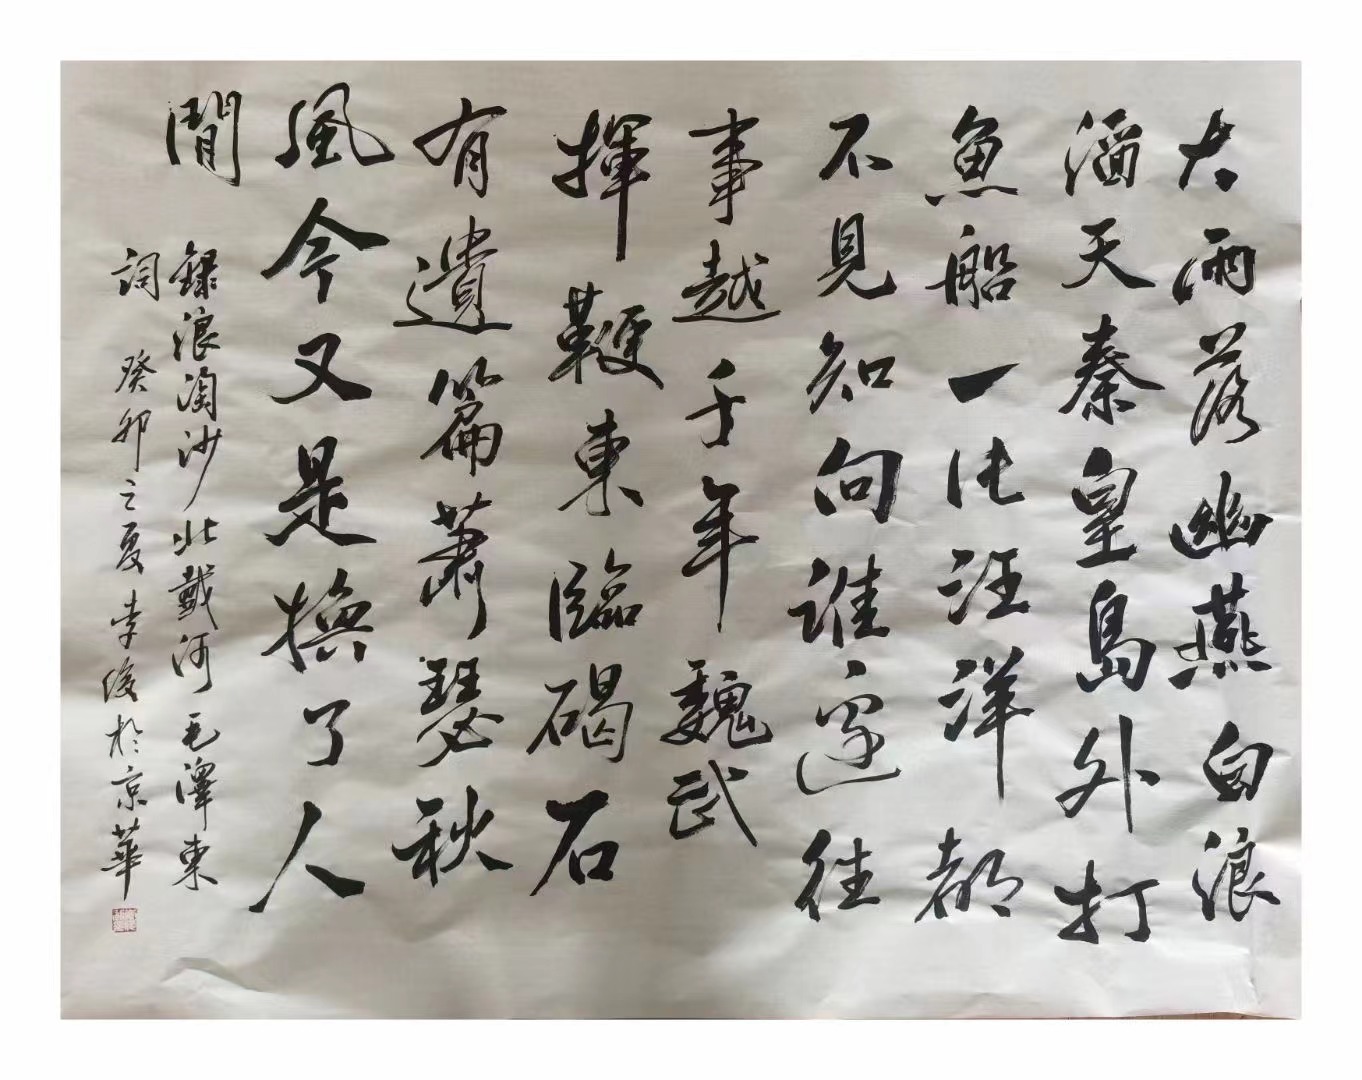 大雨落幽燕白浪
滔天秦皇島外打
魚船一片汪洋都
不見知向誰邊往
事越千年魏武
揮鞭東臨碣石
有遺篇蕭瑟秋
風今又是換了人
間
錄浪淘沙北戴河毛澤東
詞 癸卯之夏李俊於京華